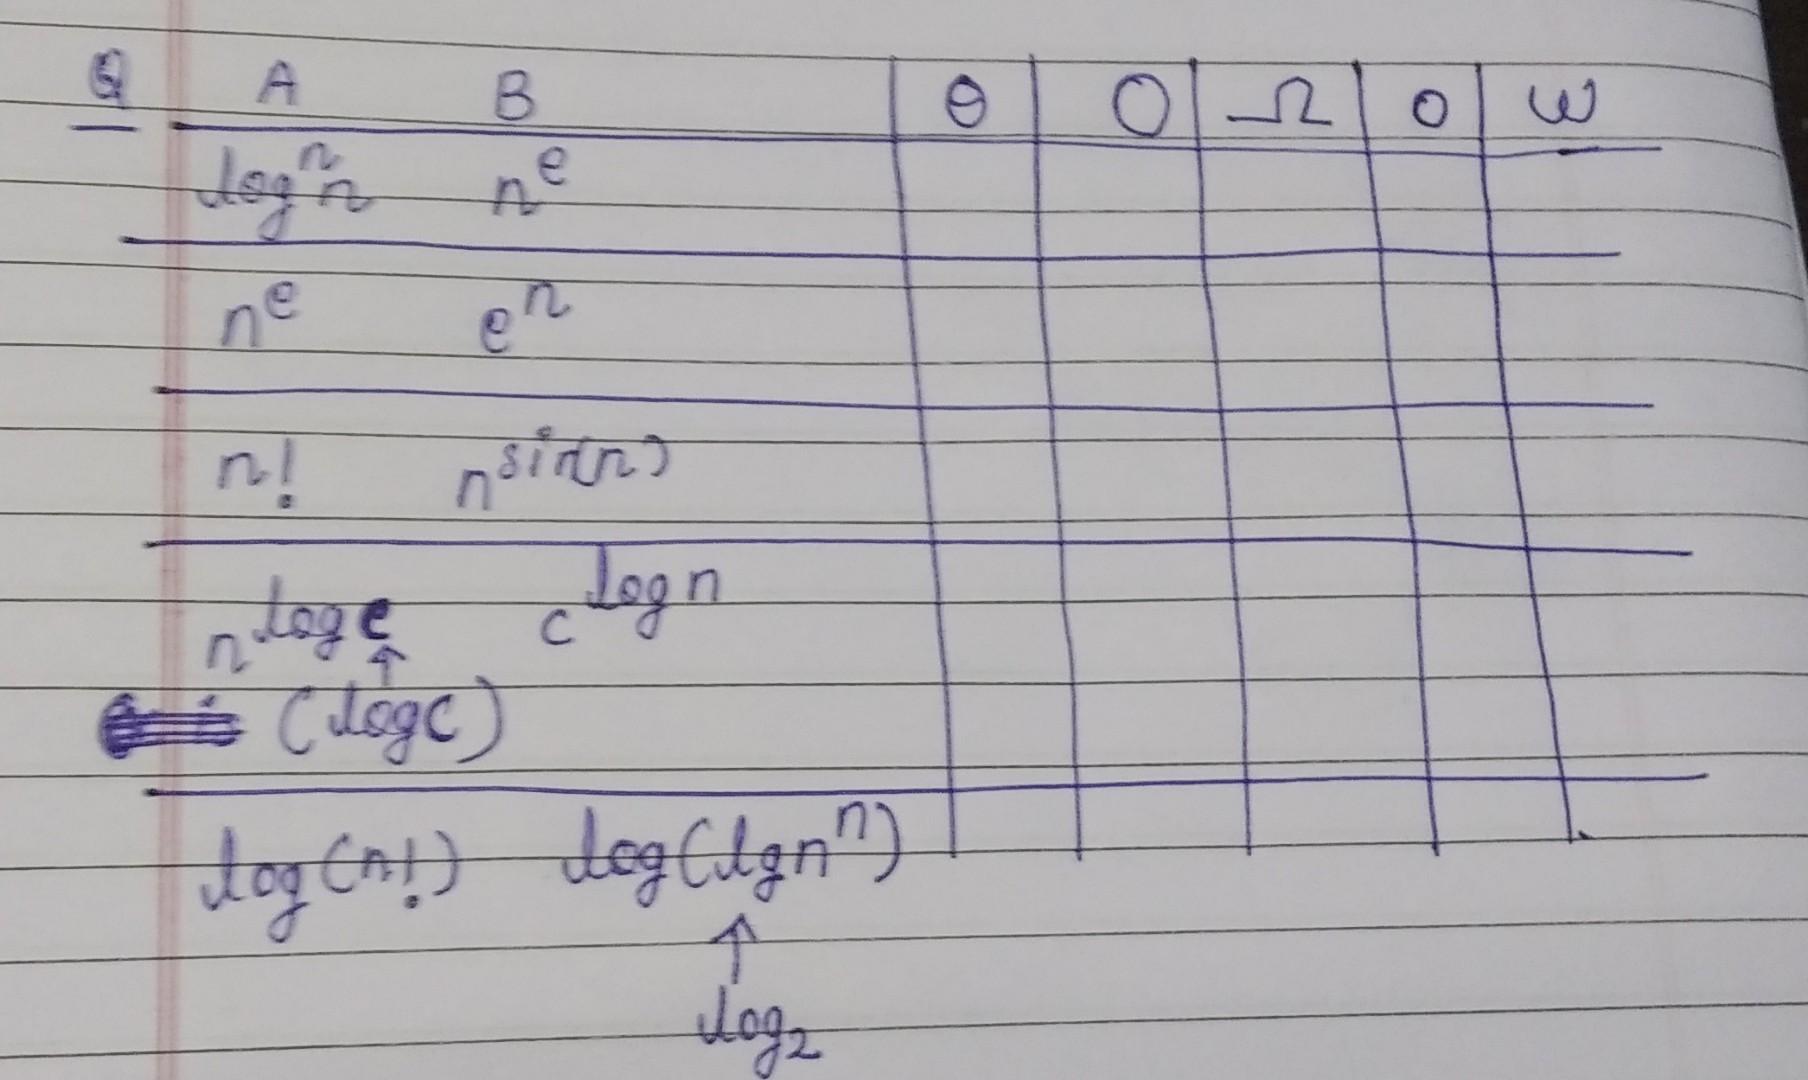 Q A B θ O Ω o ω
logⁿn nᵉ
nᵉ eⁿ
n! n^sin(n)
n^log c c^log n
↑
(log c)
log(n!) log(lgnⁿ)
↑
log₂